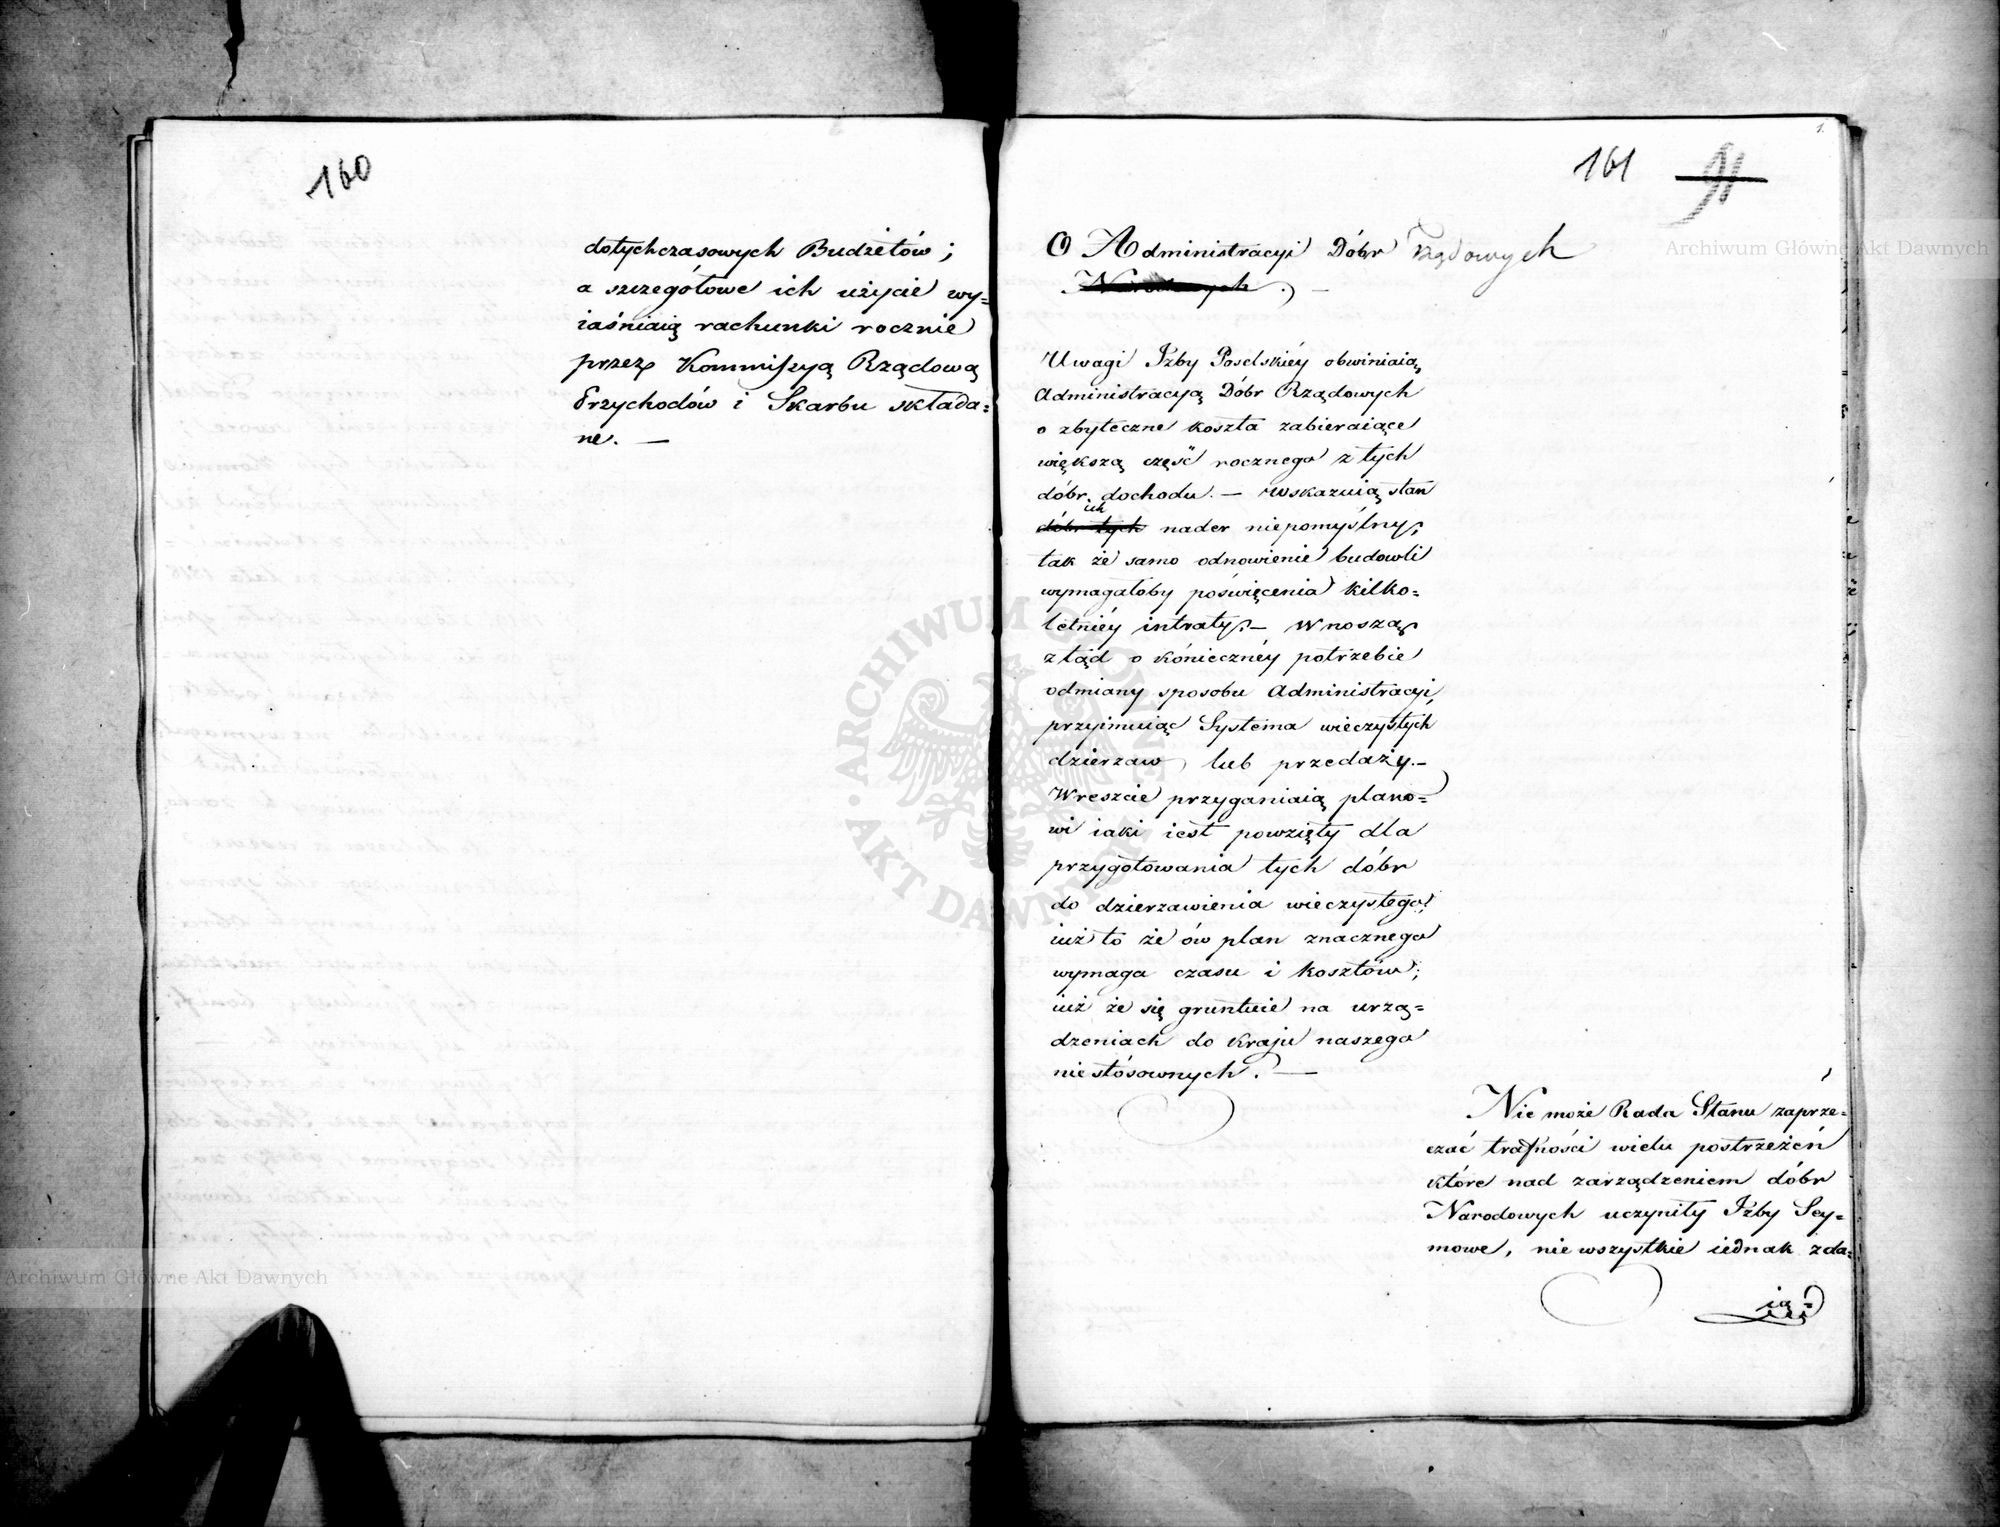 160
dotychczasowych Budżetów;
a szczegółowe ich użycie wy=
iaśniaią rachunki rocznie
przez Kommissyą Rządową
Przychodów i Skarbu składa=
ne. —
1.
161
91
O Administracyi Dóbr Rządowych
Narodowych. —
Uwagi Izby Poselskiéy obwiniaią
Administracyą Dóbr Rządowych
o zbyteczne koszta zabieraiące
większą część rocznego z tych
dóbr dochodu. — Wskazuią stan
ich
dóbr tych nader niepomyślny,
tak że samo odnowienie budowli
wymagałoby poświęcenia kilko=
letniéy intraty. — Wnoszą
ztąd o koniecznéy potrzebie
odmiany sposobu Administracyi,
przyimuiąc Systema wieczystych
dzierzaw, lub przedaży. —
Wreszcie przyganiaią plano=
wi iaki iest powzięty dla
przygotowania tych dóbr
do dzierzawienia wieczystego;
iuż to że ów plan znacznego
wymaga czasu i kosztów;
iuż że się gruntuie na urzą=
dzeniach do kraju naszego
niestósownych. —
Nie może Rada Stanu zaprze=
czać trafności wielu postrzeżeń
które nad zarządzeniem dóbr
Narodowych uczyniły Izby Sey=
mowe, nie wszystkie iednak zda=
ią
Archiwum Główne Akt Dawnych
Archiwum Główne Akt Dawnych
ARCHIWUM GŁÓWNE AKT DAWNYCH